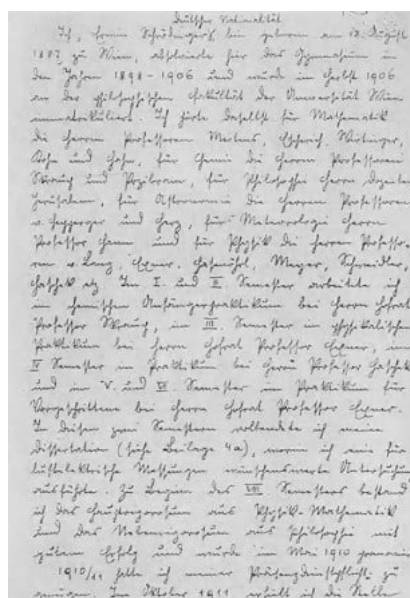 deutscher Nationalität
Ich, Erwin Schrödinger, bin geboren am 12. August
1887 zu Wien, absolvierte hier das Gymnasium in
den Jahren 1898-1906 und wurde im Herbst 1906
an der philosophischen Fakultät der Universität Wien
immatrikuliert. Ich hörte daselbst für Mathematik
die Herren Professoren Mertens, Escherich, Wirtinger,
Kohn und Hahn, für Chemie die Herren Professoren
Skraup und Przibram, für Philosophie Herrn Dozenten
Jerusalem, für Astronomie die Herren Professoren
v. Hepperger und Herz, für Meteorologie Herrn
Professor Hann und für Physik die Herren Professo-
ren v. Lang, Exner, Hasenöhrl, Meyer, Schweidler,
Haschek etz. Im I. und II. Semester arbeitete ich
im chemischen Anfängerpraktikum bei Herrn Hofrat
Professor Skraup, im III. Semester im physikalischen
Praktikum bei Herrn Hofrat Professor Exner, im
IV Semester im Praktikum bei Herrn Professor Haschek
und im V. und VI. Semester im Praktikum für
Vorgeschrittene bei Herrn Hofrat Professor Exner.
In diesen zwei Semestern vollendete ich meine
Dissertation (siehe Beilage 4a), worin ich eine für
luftelektrische Messungen wünschenswerte Untersuchung
ausführte. Zu Beginn des VIII. Semesters bestand
ich das Hauptrigorosum aus Physik-Mathematik
und das Nebenrigorosum aus Philosophie mit
gutem Erfolg und wurde im Mai 1910 promoviert
1910/11 hatte ich meiner Präsenzdienstpflicht zu
genügen. Im Oktober 1911 erhielt ich die Stelle